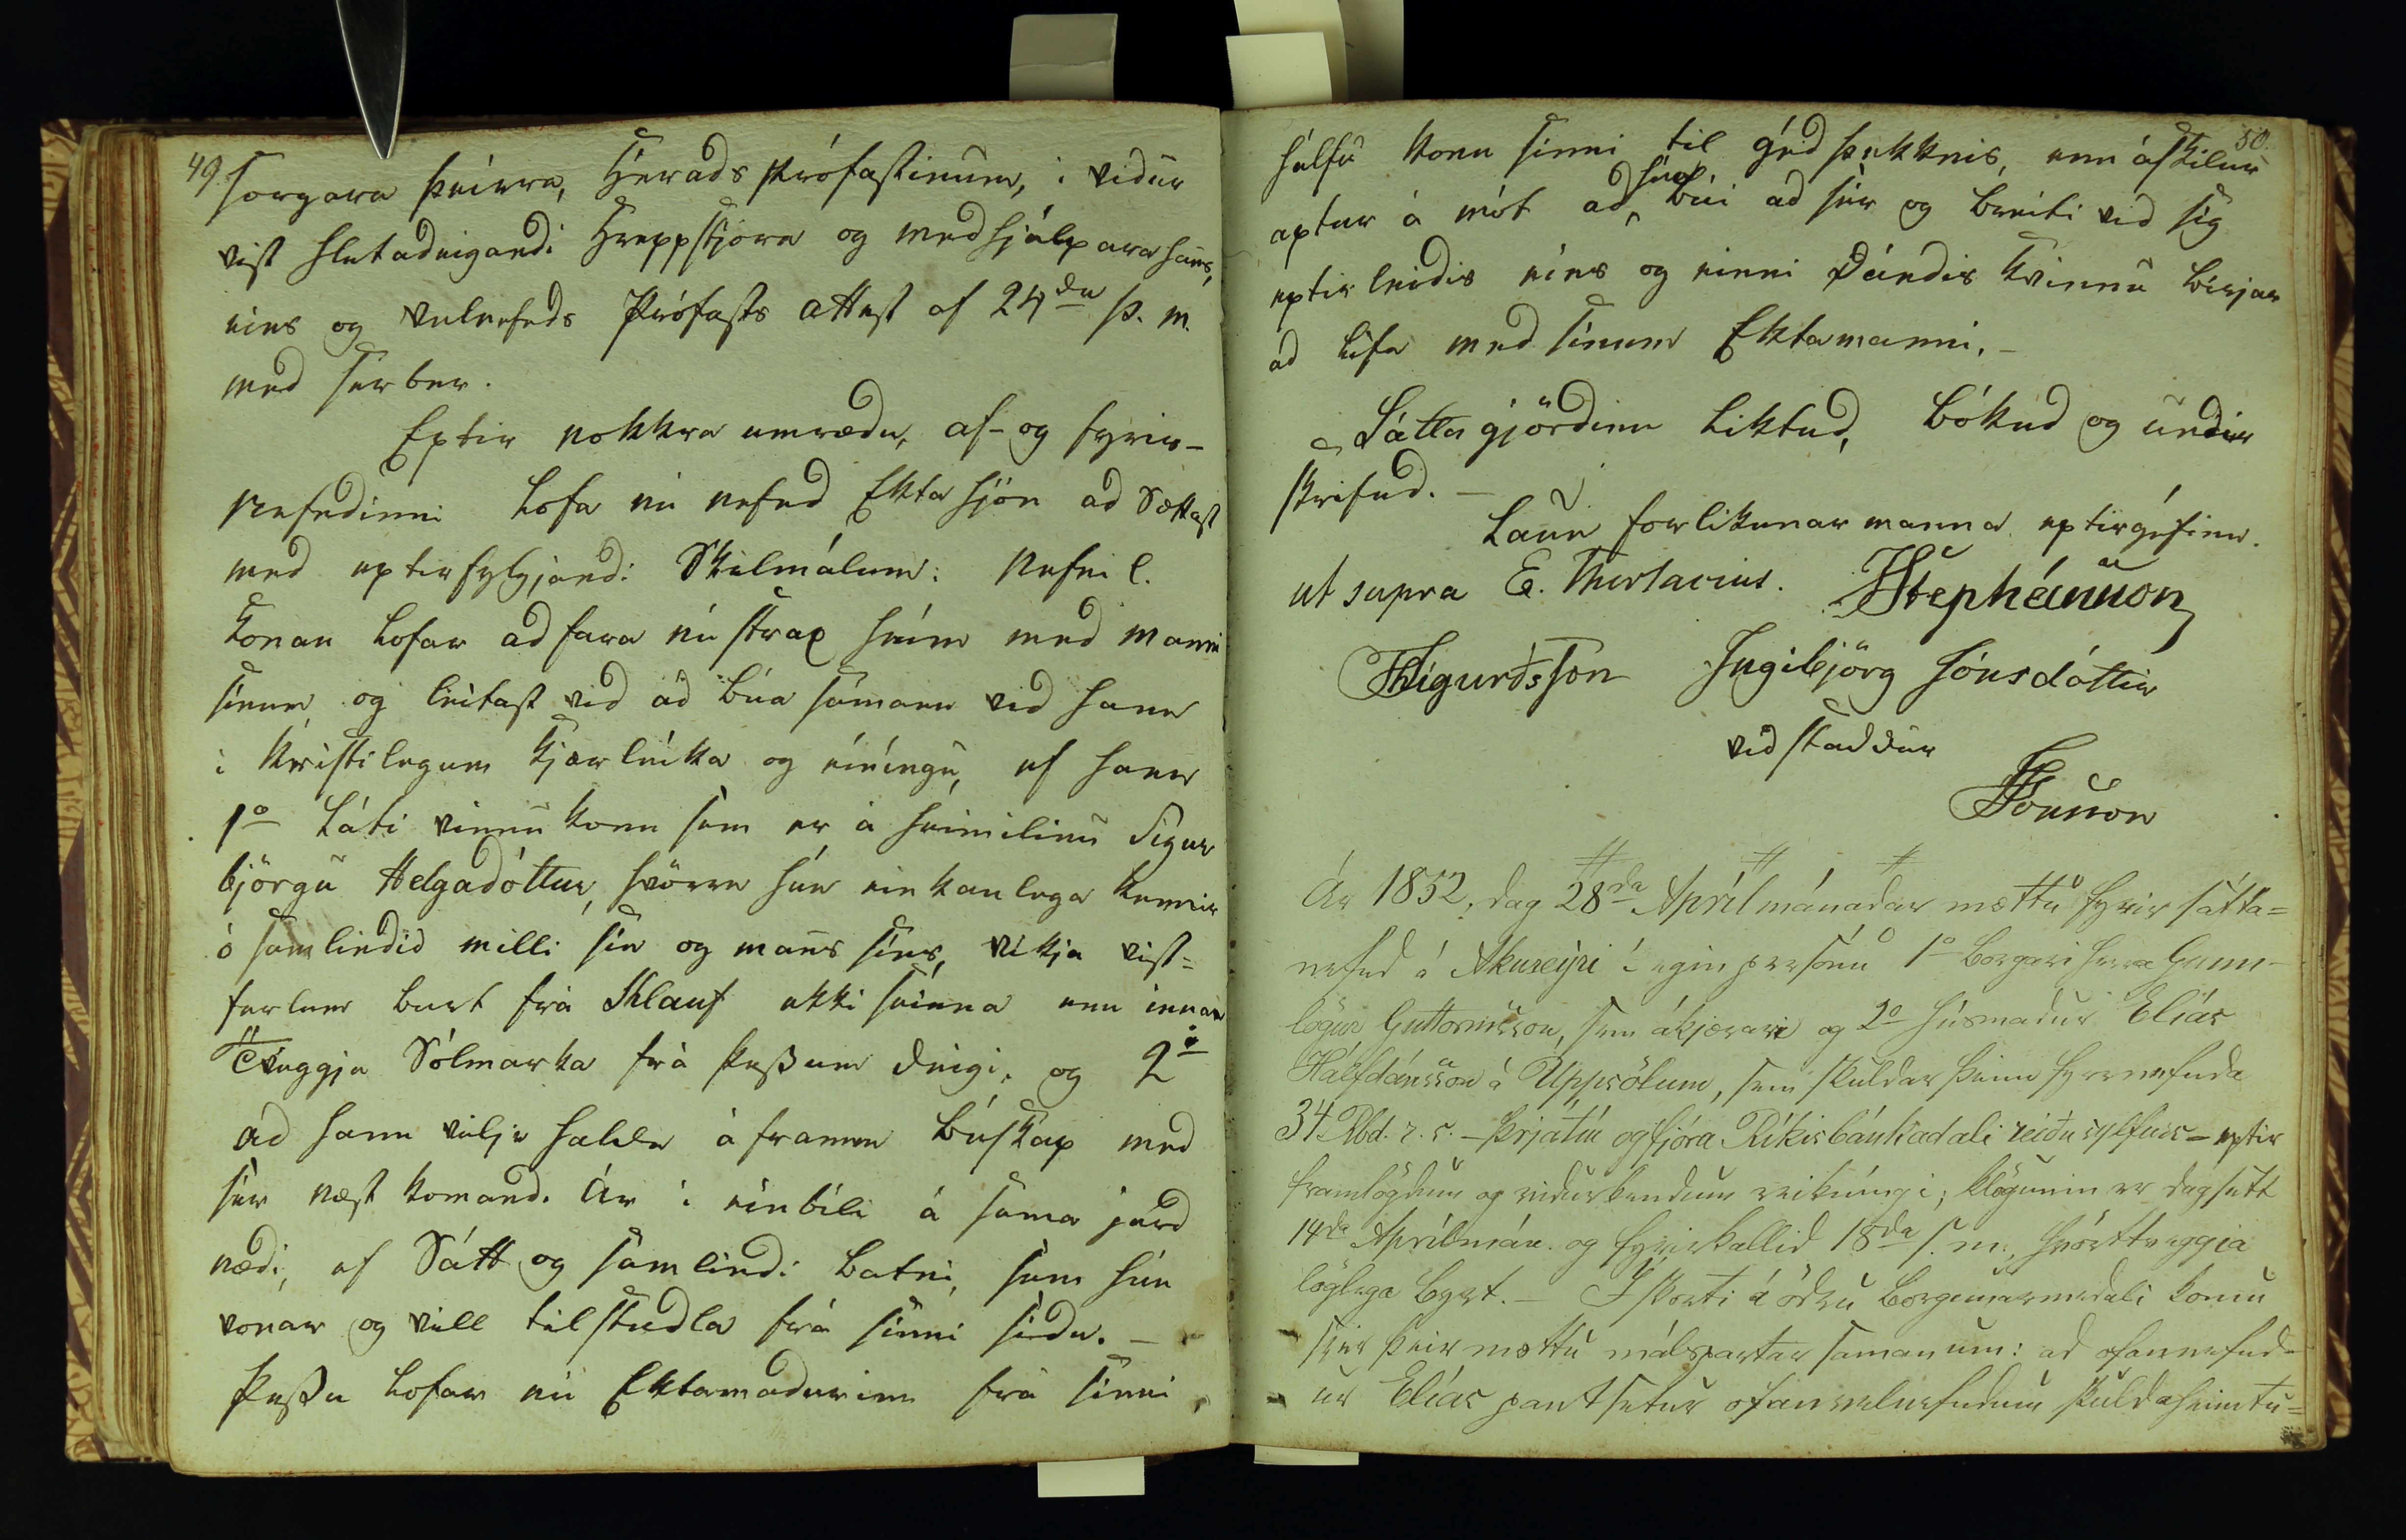 49.
sorgara þeirra, Héradsprófastinum, í vidur
vist hlutadeigandi Hreppstjóra og medhjálpara hans,
eins og velnefnds Prófasts attest af 24da þ. m.
med sér ber.
Eptir nokkra umrædu, af- og fyrir-
nefndinni lofa nú nefnd Ektahjón ad Sættast
med eptirfylgjandi Skilmálum: Nefnil.
Konan lofar ad fara nú strax heim med manni
sínum, og leitast vid ad búa saman vid hann
í kristilegum kjærleika og eíníngu, ef hann
1o Láti vinnukonu sem er á heimilinu Sigur
björgu Helgadóttur, hvörre hún einkanlega kennir
ósamlindid milli sín og manns síns, víkja vist-
ferlum burt frá Klauf ekki seinna enn innan
Tveggja Sólmarka frá þessum deigi, og 2o
ad hann vilje halda áframm búskap med
sér næst komandi Ár í einbíli á sama jard
nædi, ef Sátt og samlindi batni, sem hún
vonar og vill tilstudla frá sinni sídu. –
Þessu lofar nú Ektamadurinn frá sinni
50.
hálfu konu sinni til gédþekknis, enn áskilur
aptur á mót ad hún búi ad sér og breiti vid sig
eptirleidis eins og einni Dándis kvinnu birjar
ad lifa med sínum Ektamanni. –
Sáttagjördinn liktud, bókud og undir
skrifud. –
Laun forlikunarmanna eptirgéfinn.
ut supra E. Thorlacius. Stephánsson
Sigurdsson Ingibjörg Jónsdóttir
vidstaddur
Jónsson
Ár 1852, dag 28da Aprílmánadar mættu fyrir sátta=
nefnd á Akureyri í eginpersónu 1o borgari herra Gunn-
lögur Guttormsson, sem ákjærari og 2o húsmadur Elías
Hálfdánsson á Uppsölum, sem skuldar þeim fyrrnefnda
34 Rbd. r. s. – þrjátíu og fjóra Ríkisbánkadali reidusylfurs – eptir
framlögdum og vidurkendum reikníngi; klögunin er dagsett
14da Aprílmán. og fyrirkallid 18da s. m., hvörttveggia
löglega byrt. – Í skorti á ödru borgunarmedali komu
sjer þeir mættu málspartar saman um: ad ofannefnd-
ur Elías pantsetur ofanvelnefndum skuldaheimtu=